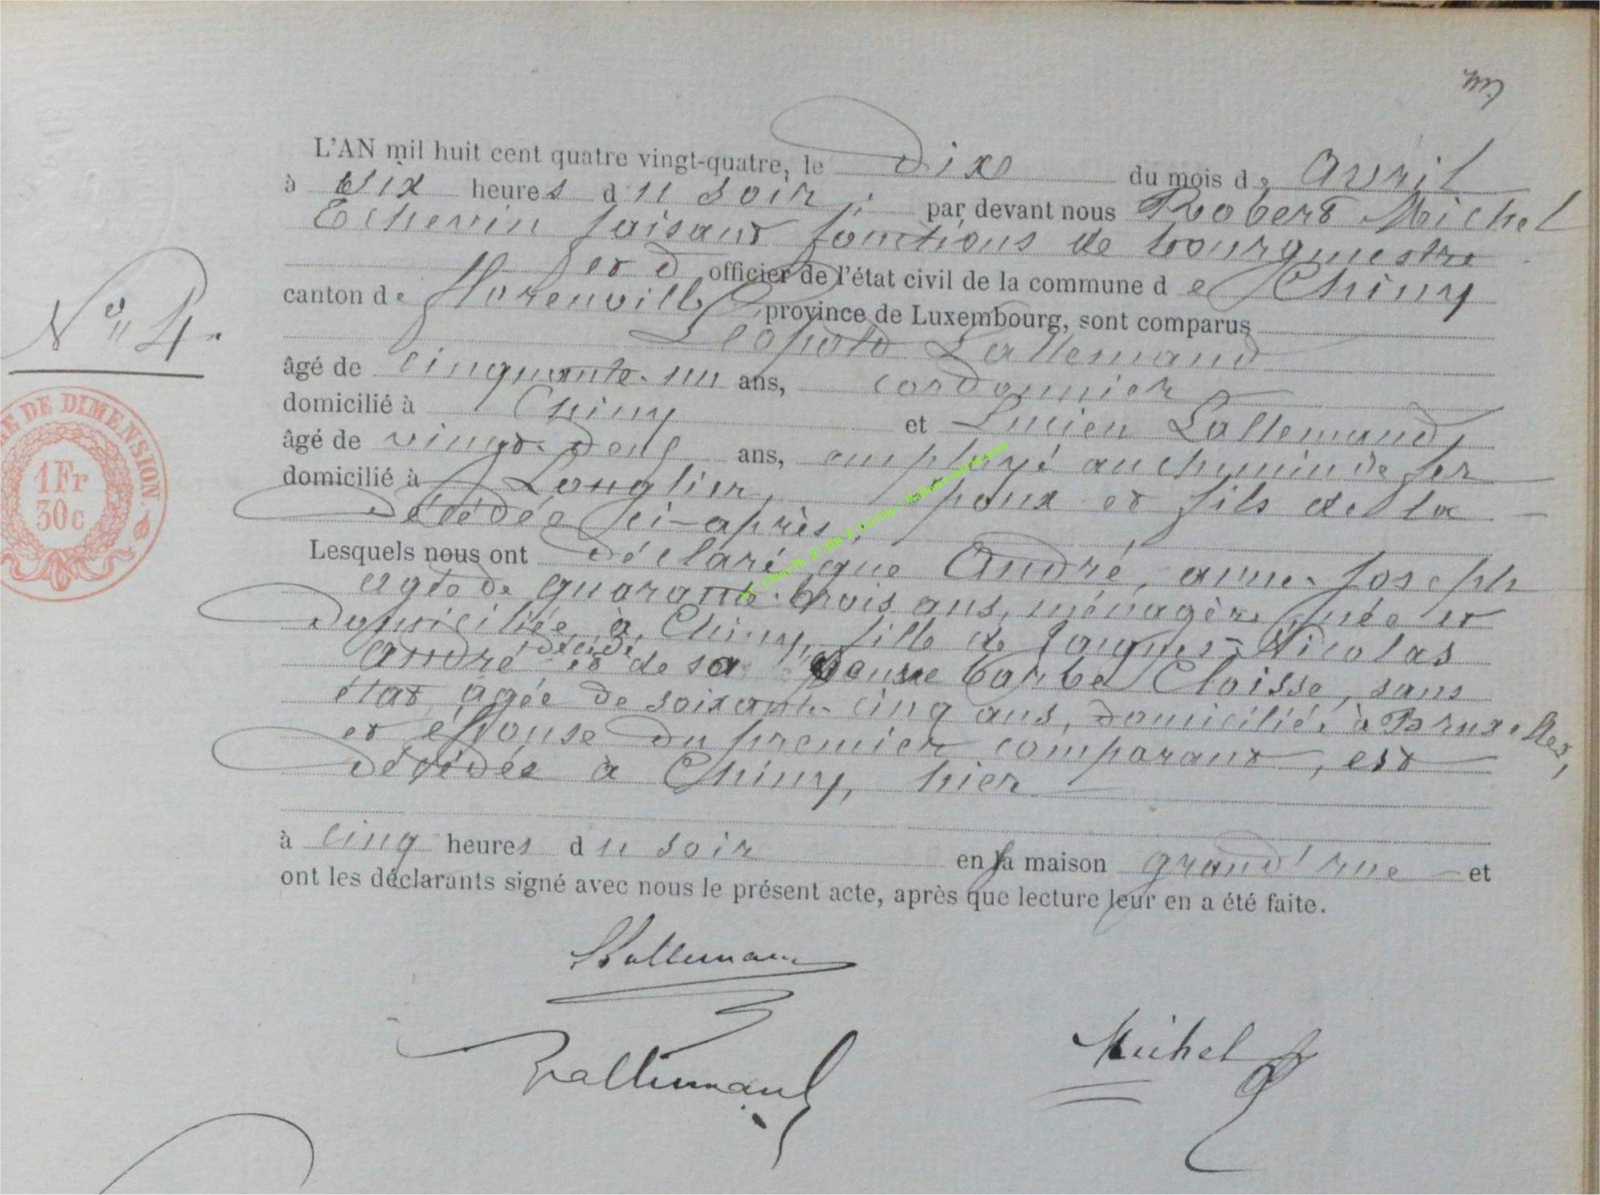 L'AN mil huit cent quatre vingt-quatre, le dix du mois de avril
à six heures du soir, par devant nous Robert Michel
Echevin faisant fonctions de bourgmestre
et d officier de l'état civil de la commune de Chiny
canton de Florenville province de Luxembourg, sont comparus
Léopold Lallemand
âgé de cinquante-un ans, cordonnier
domicilié à Chiny et Lucien Lallemand,
N° 4.
âgé de vingt-deux ans, employé au chemin de fer
domicilié à Longlier, époux et fils de la
décédée ci-après
Lesquels nous ont déclaré que André, anne-Joseph
agée de quarante-trois ans, ménagère, née et
domiciliée à Chiny, fille de Jacques-Nicolas
décédé
André et de sa épouse barbe Cloisse, sans
état, agée de soixante-cinq ans, domiciliée à Bruxelles,
et épouse du premier comparant, est
décédée à Chiny, hier
à cinq heures du soir en sa maison grand'rue et
ont les déclarants signé avec nous le présent acte, après que lecture leur en a été faite.
Lallemand
Lallemand
Michel
DE DIMENSION
1 Fr
30 c